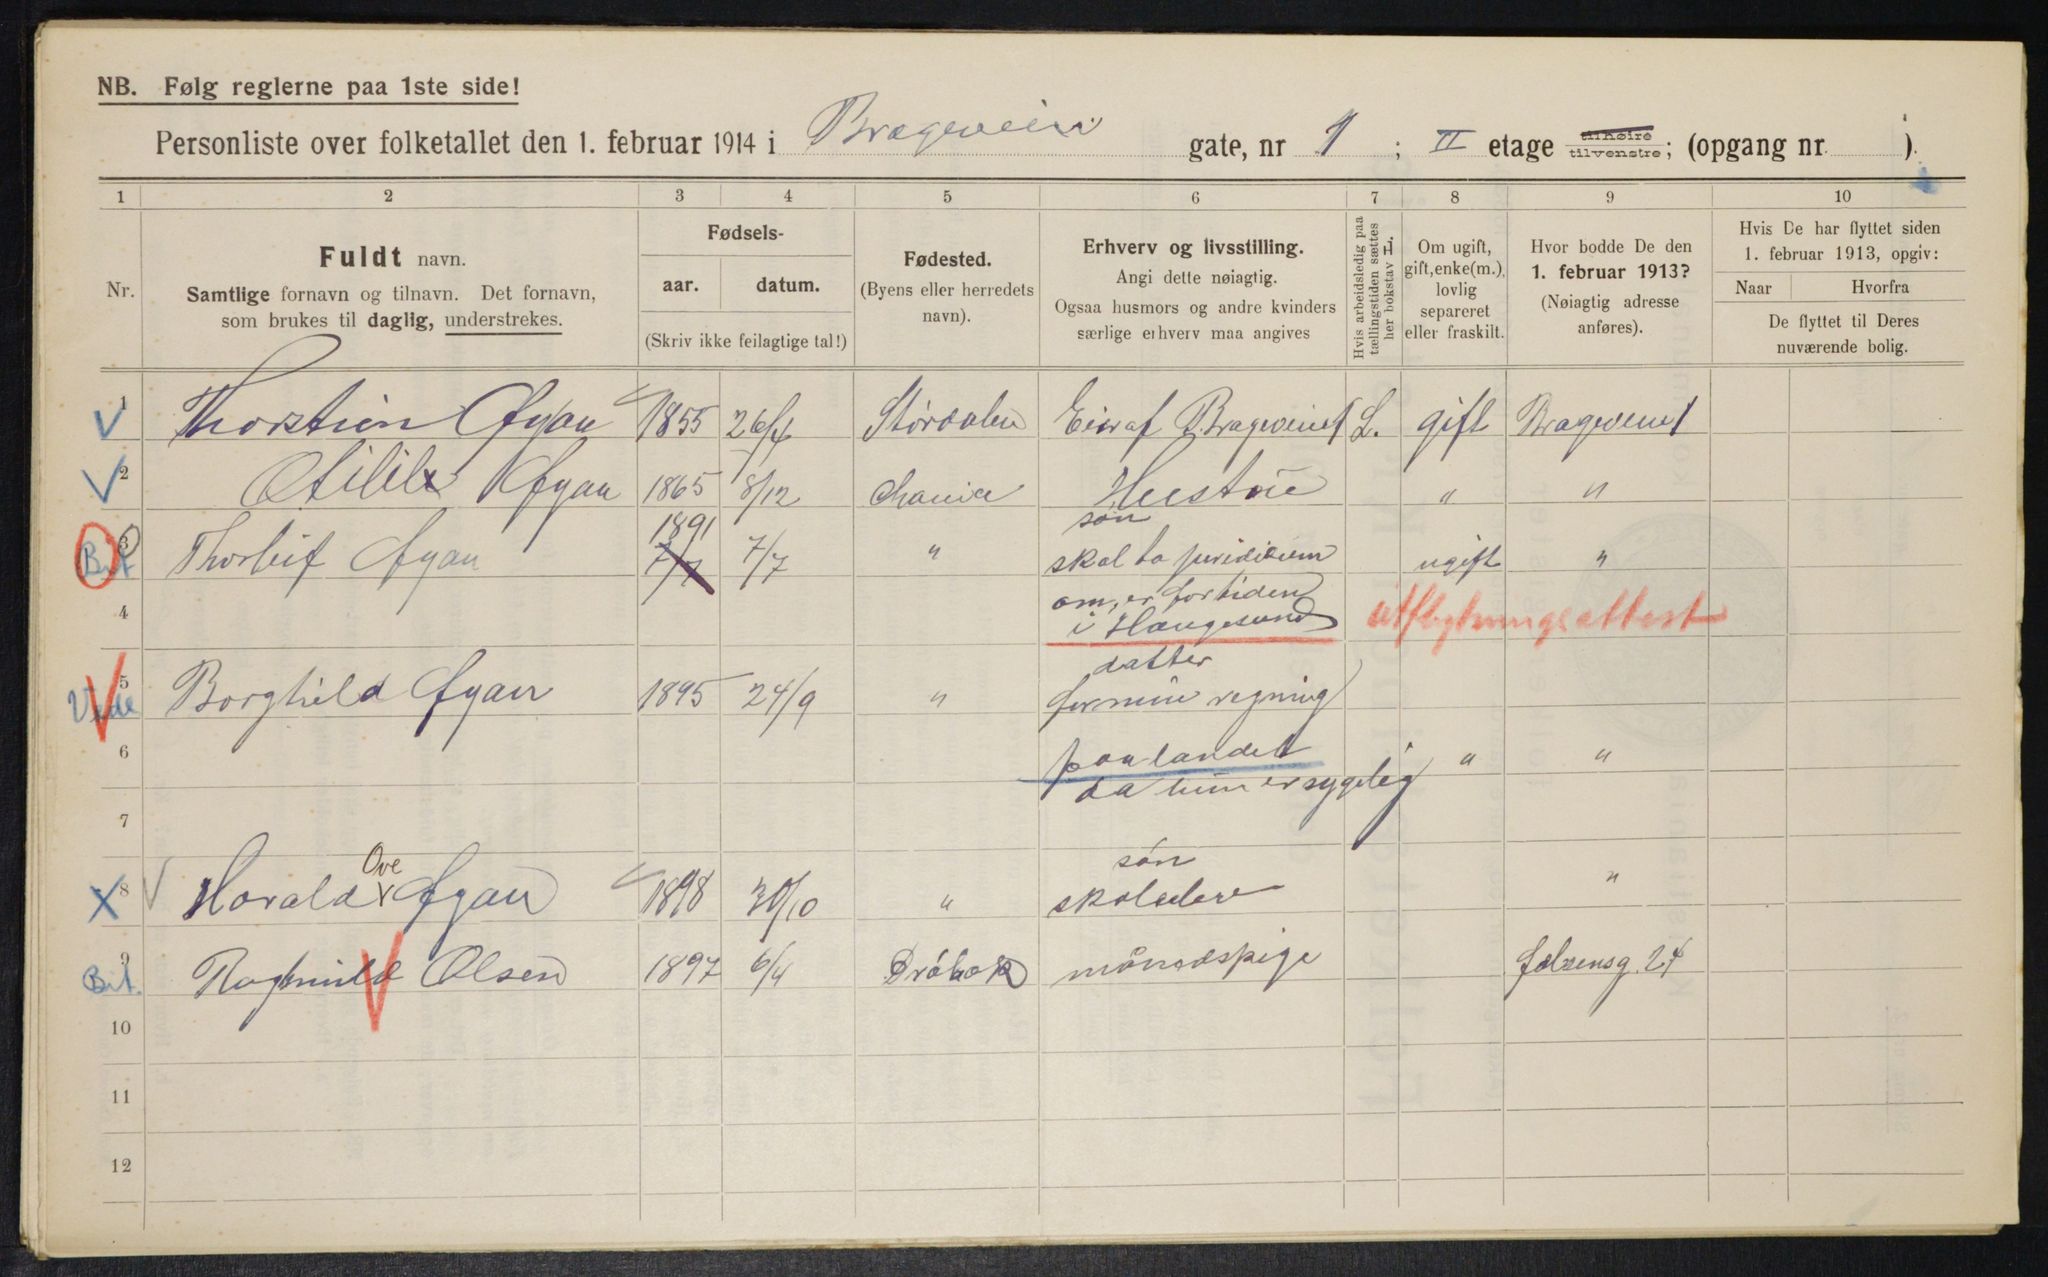 NB. Følg reglerne paa 1ste side!
Personliste over folketallet den 1. februar 1914 i Brageveien gate, nr 1 ; II etage tilhøire tilvenstre; (opgang nr. ).
1 2 3 4 5 6 7 8 9 10
Nr.
Fuldt navn.
Samtlige fornavn og tilnavn. Det fornavn,
som brukes til daglig, understrekes.
Fødsels-
aar. datum.
(Skriv ikke feilagtige tal!)
Fødested.
(Byens eller herredets
navn).
Erhverv og livsstilling.
Angi dette nøiagtig.
Ogsaa husmors og andre kvinders
særlige erhverv maa angives
Hvis arbeidsledig paa
tællingstiden sættes
her bokstav L.
Om ugift,
gift, enke(m.),
lovlig
separeret
eller fraskilt.
Hvor bodde De den
1. februar 1913?
(Nøiagtig adresse
anføres).
Hvis De har flyttet siden
1. februar 1913, opgiv:
Naar Hvorfra
De flyttet til Deres
nuværende bolig.
1 Thorstien 1855 26/4 Størdalen Eier af Brageveien 1 L. gift Brageveien 1
2 1865 8/12 Hustru " "
søn
Bit 3 Thorleif 1891 7/7 7/7 " skal ta juridicum ugift "
4 om, er for tiden
i Haugesund utflytningsattest
datter
5 Borghild 1895 24/9 " for min regning
6 paa landet " "
da hun er sygelig
7
søn
8 Harald Ove 1898 30/10 " skoleelev "
Bit. 9 Raghnild Olsen 1897 6/4 Drøbak månedspige 24
10
11
12